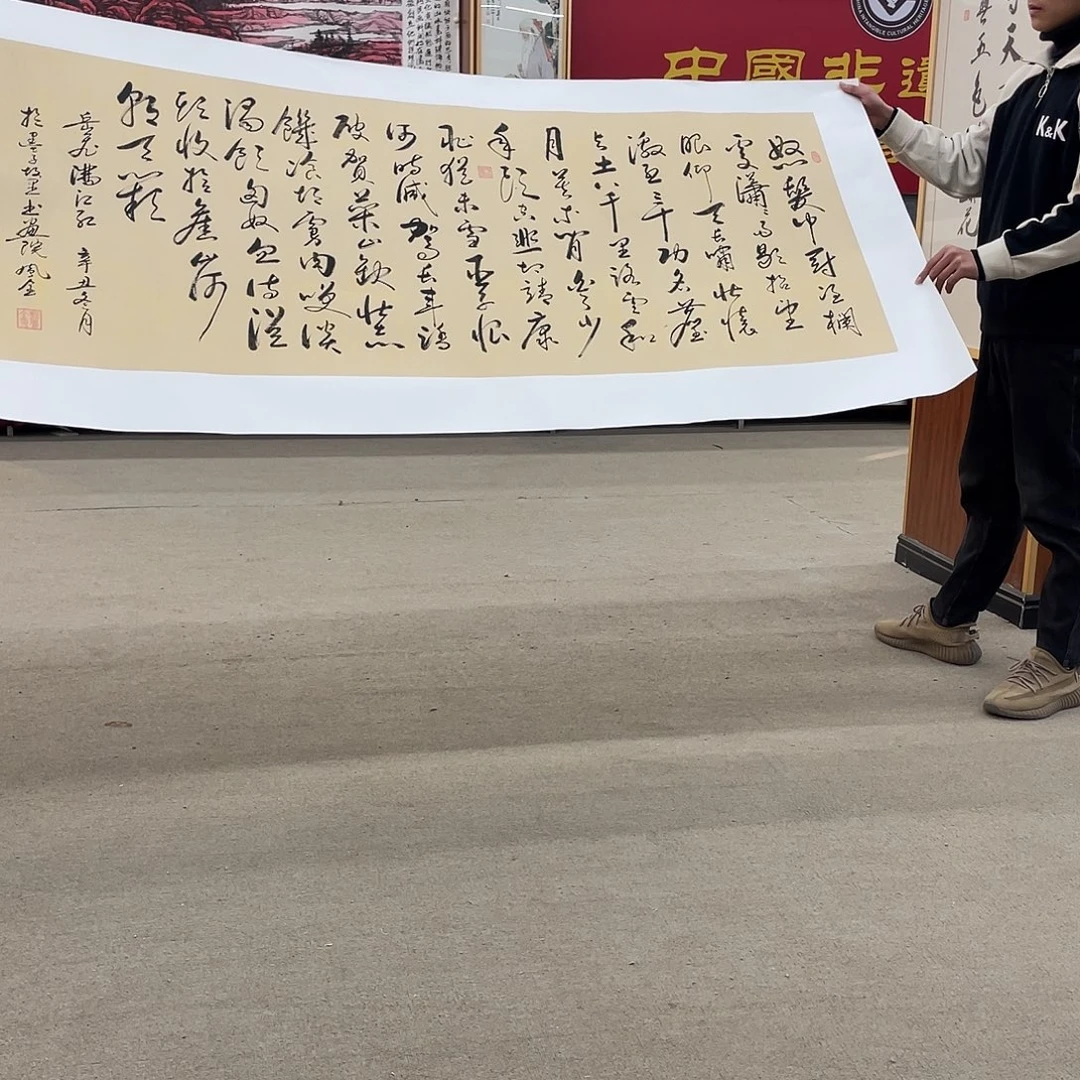 中國非遺
INTANGIBLE CULTURAL HERITAGE
K&K
天
五色
花
怒髮冲冠凭欄
處瀟々雨歇抬望
眼仰天長嘯壯懷
激烈三十功名塵
與土八千里路雲和
月莫等閒白了少
年頭空悲切靖康
恥猶未雪臣子恨
何時滅駕長車踏
破賀蘭山缺壯志
饑飡胡虜肉笑談
渴飲匈奴血待從
頭收拾舊山河
朝天闕
岳飛滿江紅 辛丑冬月
於墨子故里書畫院